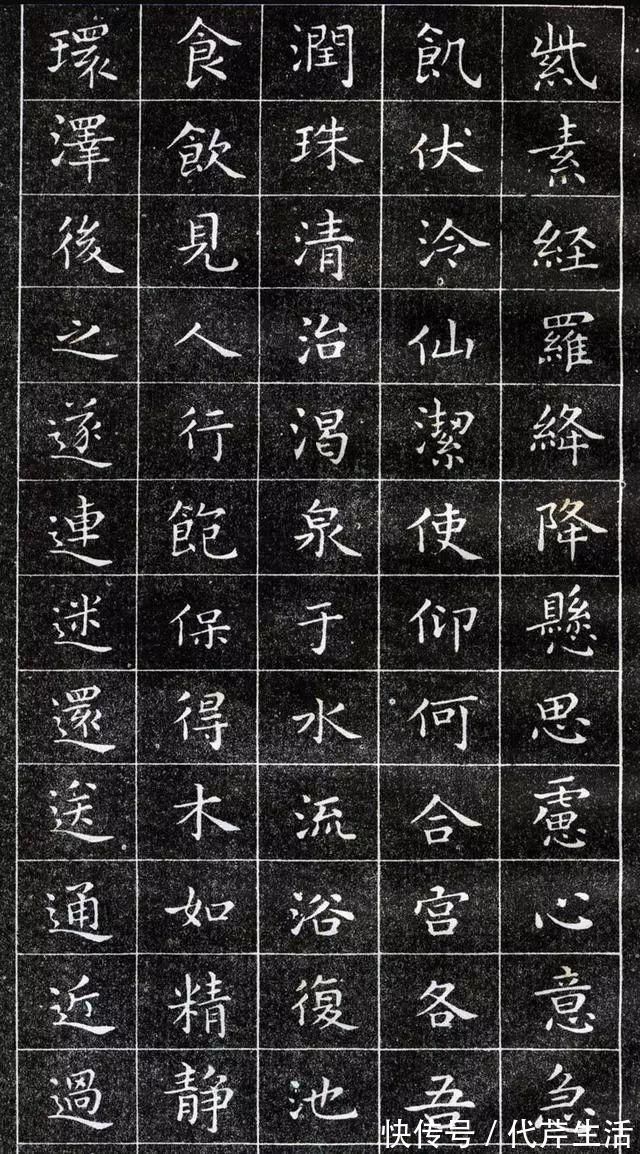 紫素経羅絳降懸思慮心意急
飢伏泠仙潔使仰何合宮各吾
潤珠清治渴泉于水流浴復池
食飲見人行飽保得木如精静
環澤後之遂連迷還送通近過
快传号/代芹生活